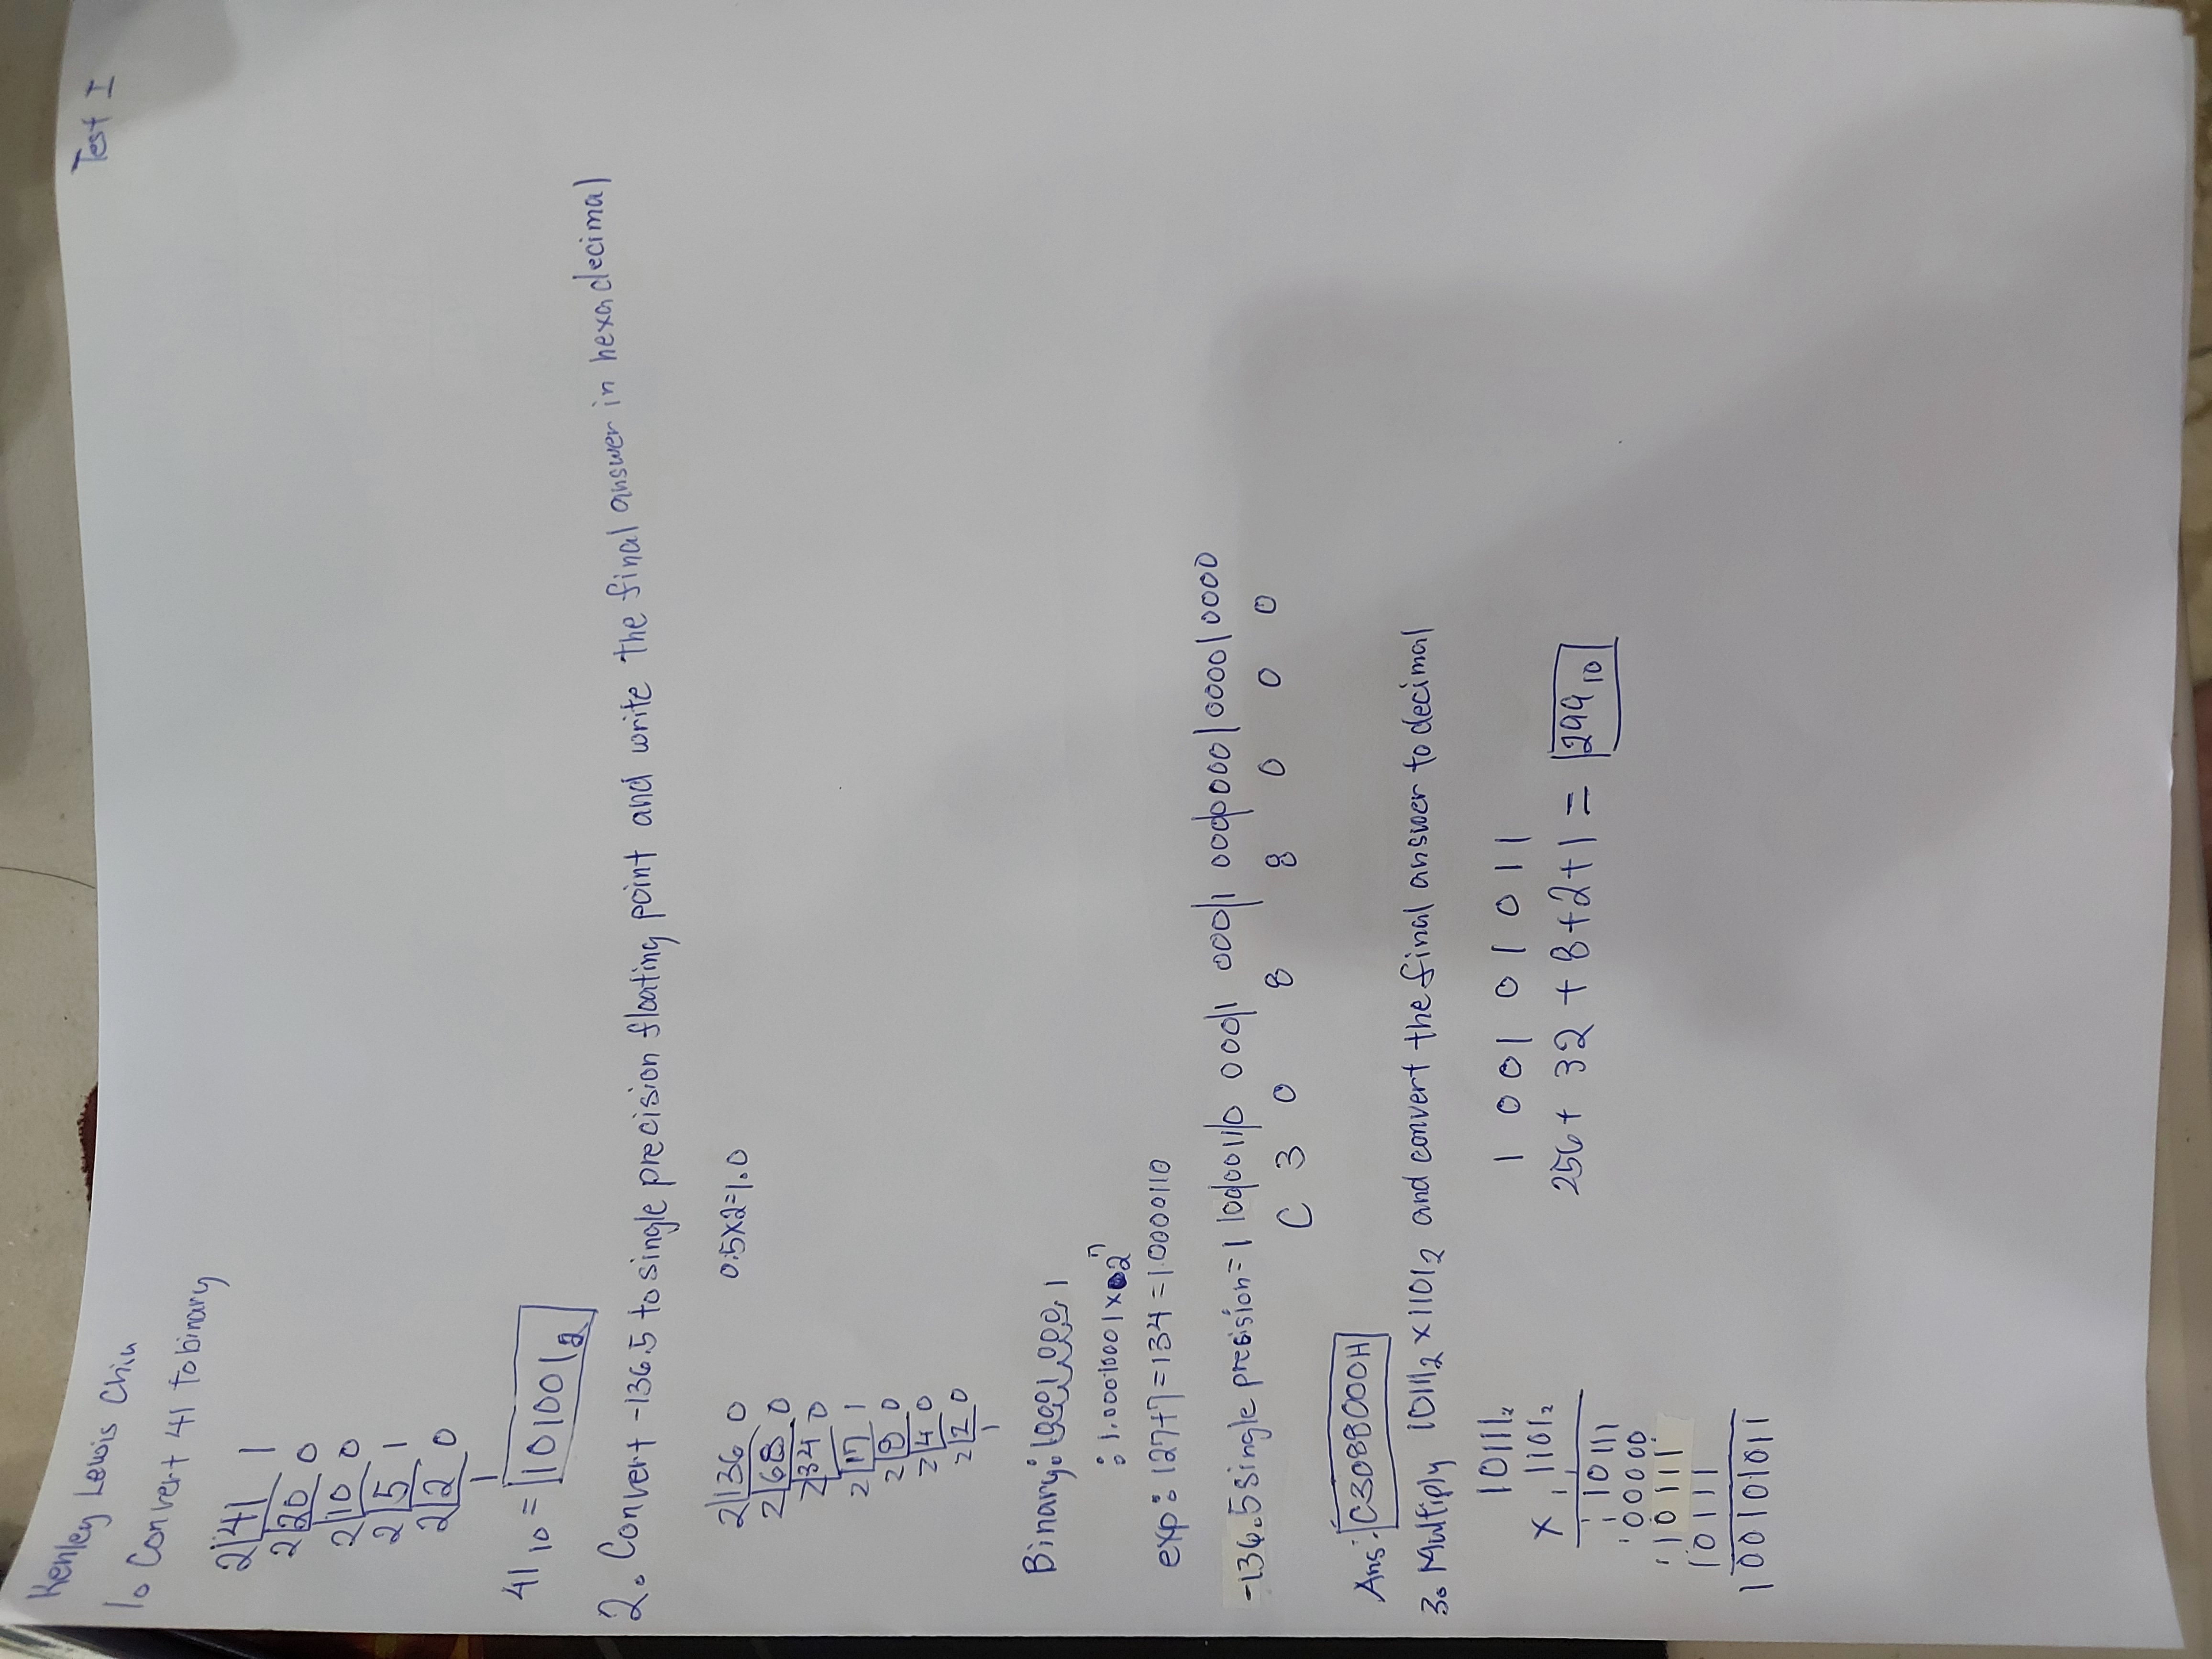 Kenley Lewis Chiu
Test I
1. Convert 41 to binary
2|41 1
2|20 0
2|10 0
2|5 1
2|2 0
1
41₁₀ = 101001₂
2. Convert -136.5 to single precision floating point and write the final answer in hexadecimal
2|136 0 0.5×2=1.0
2|68 0
2|34 0
2|17 1
2|8 0
2|4 0
2|2 0
1
Binary: 10001000.1
: 1.00010001×2⁷
exp: 127+7=134=10000110
-136.5 single precision = 1 100|0011|0 000|1 000|1 000|0000|0000|0000
C 3 0 8 8 0 0 0
Ans: C3088000H
3. Multiply 10111₂ × 1101₂ and convert the final answer to decimal
10111₂ 1 0 0 1 0 1 0 1 1
× 1101₂ 256 + 32 + 8+2+1 = 299₁₀
10111
00000
10111
10111
100101011